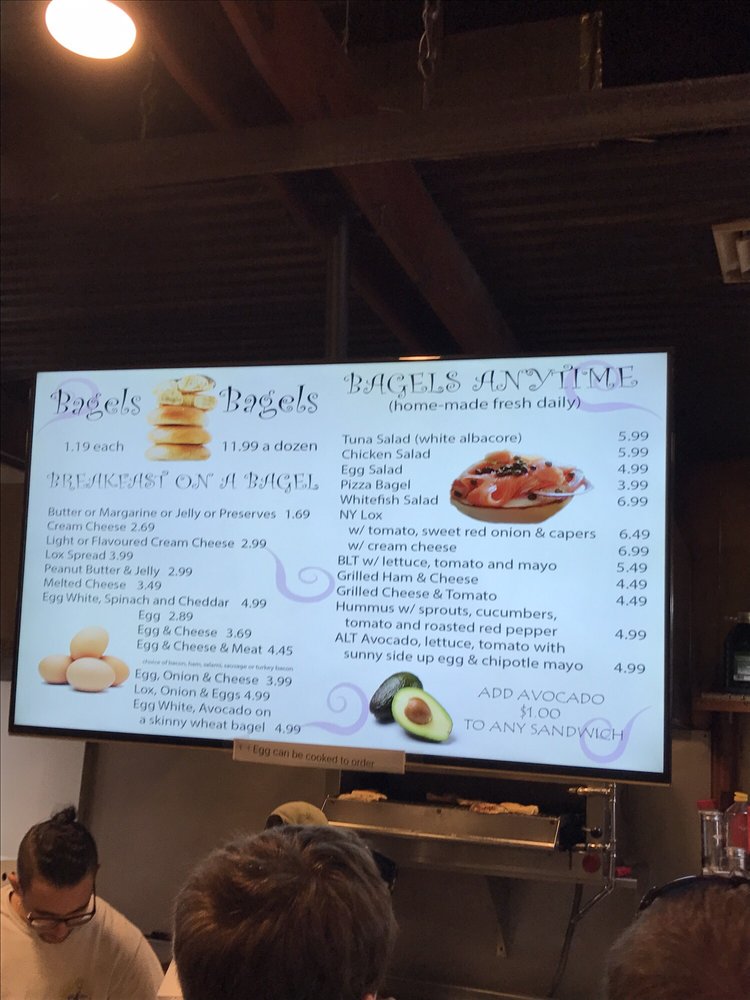 Bagels Bagels
1.19 each 11.99 a dozen
BREAKFAST ON A BAGEL
Butter or Margarine or Jelly or Preserves 1.69
Cream Cheese 2.69
Light or Flavoured Cream Cheese 2.99
Lox Spread 3.99
Peanut Butter & Jelly 2.99
Melted Cheese 3.49
Egg White, Spinach and Cheddar 4.99
Egg 2.89
Egg & Cheese 3.69
Egg & Cheese & Meat 4.45
choice of bacon, ham, salami, sausage or turkey bacon
Egg, Onion & Cheese 3.99
Lox, Onion & Eggs 4.99
Egg White, Avocado on
a skinny wheat bagel 4.99
BAGELS ANYTIME
(home-made fresh daily)
Tuna Salad (white albacore) 5.99
Chicken Salad 5.99
Egg Salad 4.99
Pizza Bagel 3.99
Whitefish Salad 6.99
NY Lox
w/ tomato, sweet red onion & capers 6.49
w/ cream cheese 6.99
BLT w/ lettuce, tomato and mayo 5.49
Grilled Ham & Cheese 4.49
Grilled Cheese & Tomato 4.49
Hummus w/ sprouts, cucumbers,
tomato and roasted red pepper 4.99
ALT Avocado, lettuce, tomato with
sunny side up egg & chipotle mayo 4.99
ADD AVOCADO
$1.00
TO ANY SANDWICH
Egg can be cooked to order